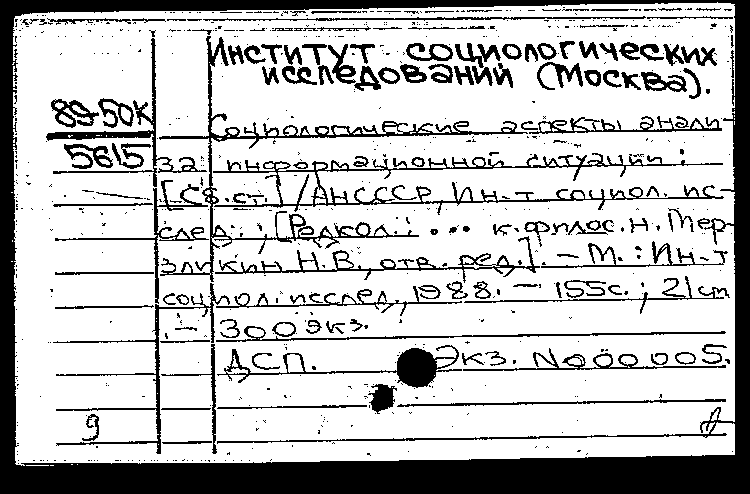 Институт социологических
исследований (Москва).
89-50К
5615
Социологические аспекты анали-
за информационной ситуации:
[Сб.ст.]/АНСССР, Ин-т социол. ис-
след.; [Редкол.: ... к.филос.н. Мер-
зликин Н.В., отв. ред.]. – М.: Ин-т
социол. исслед., 1988. – 155с.; 21 cm
. – 300экз.
ДСП. Экз. N000005.
9